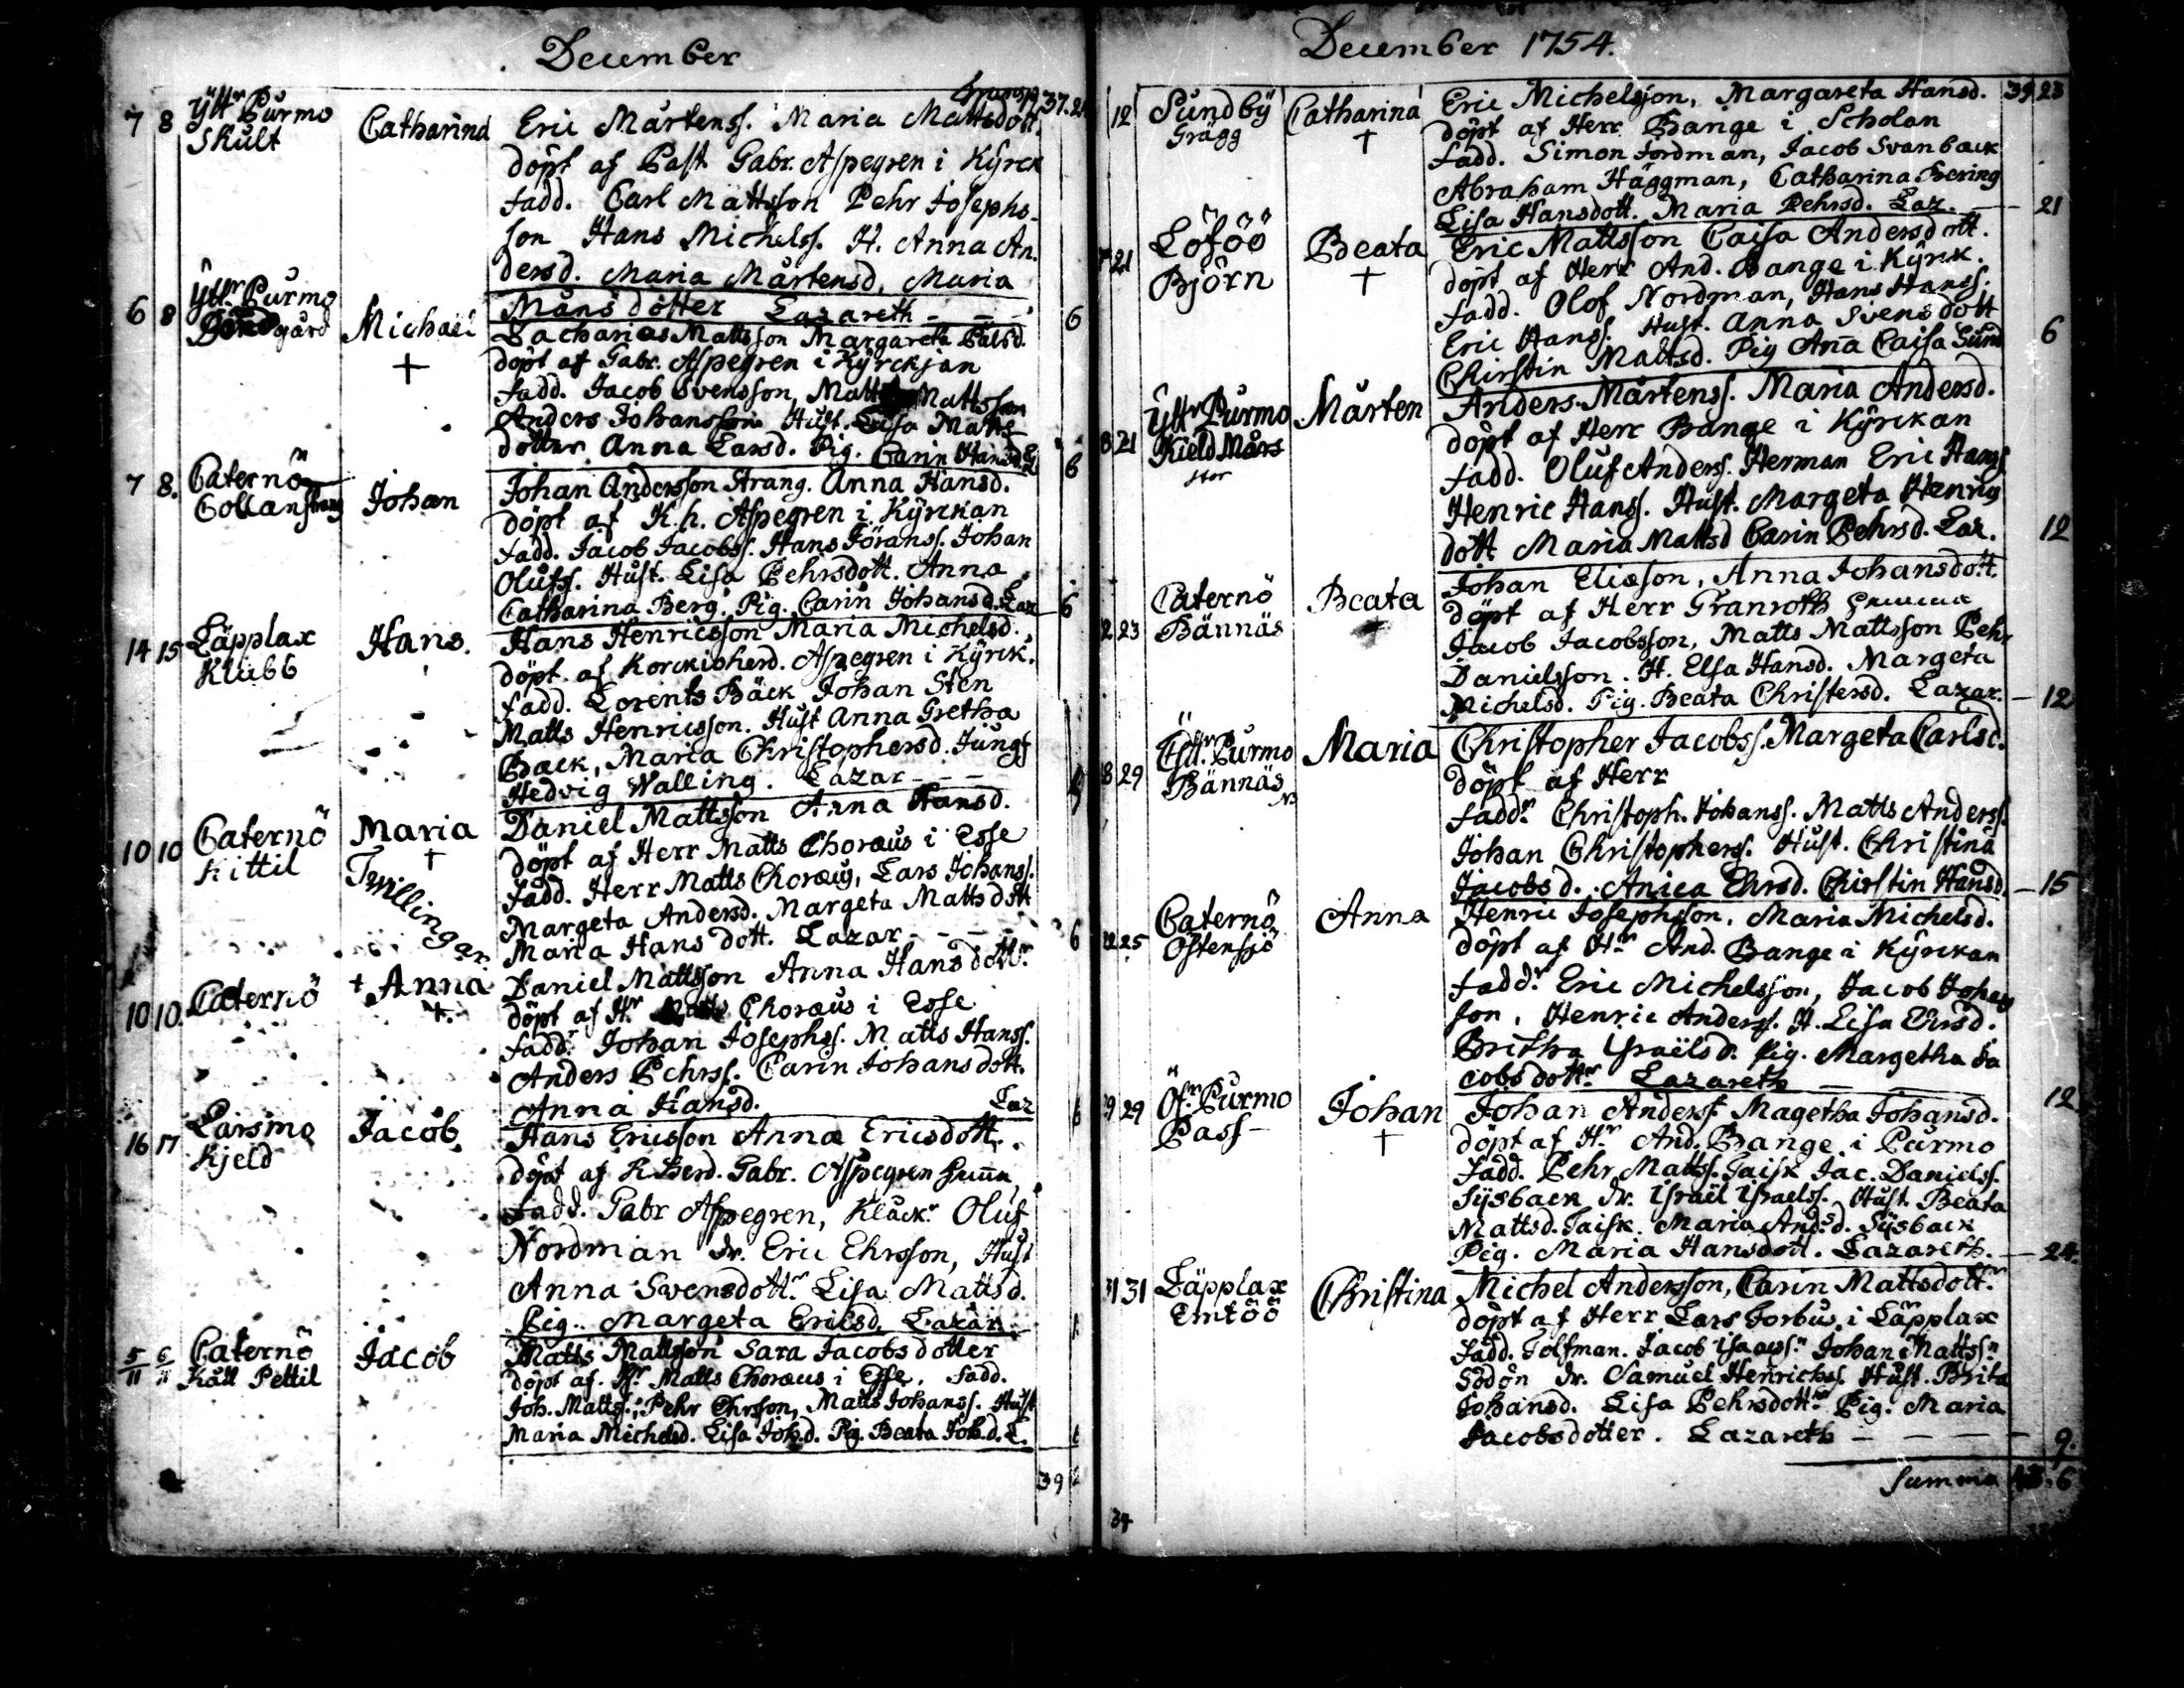 December
Transp. 37. 21
7 8 Ytt.r Purmo Catharina Eric Mårtenss. Maria Mattsdott.
Skult döpt af Past. Gabr. Aspegren i Kÿrck
fadd. Carl Mattsson Pehr Josephs-
son Hans Michelss. H. Anna An-
dersd. Maria Mårtensd. Maria
Månsdotter Lazareth - - - 6
6 8 Ytt.r Purmo Michaël Zacharias Mattsson Margareta Pålsd.
gård + döpt af Gabr. Aspegren i Kÿrckjan
fadd. Jacob Svensson, Matts Mattsson
Anders Johansson Hust. Lisa Matts
dotter. Anna Larsd. Pig. Carin Hansd. 6
7 8. Caternö Johan Johan Andersson Strang. Anna Hansd.
Collanstrang döpt af K.h. Aspegren i Kÿrckan
fadd. Jacob Jacobss. Hans Jöranss. Johan
Olufss. Hust. Lisa Pehrsdott. Anna
Catharina Berg. Pig. Carin Johansd. Laz 6
14 15 Läpplax Hans. Hans Henricsson Maria Michelsd.
Klubb döpt af Korckioherd. Aspegren i Kÿrck.
fadd. Lorents Bäck Johan Sten
Matts Henricsson. Hust Anna Gretha
Back, Maria Christophersd. Jungf
Hedvig Walling. Lazar - - -
10 10 Caternö Maria Daniel Mattsson Anna Hansd.
Kittil + döpt af Herr Matts Choræus i Esse
Twillingar. fadd. Herr Matts Choræus, Lars Johanss.
Margeta Andersd. Margeta Mattsdott
Maria Hansdott. Lazar - - - 6
10 10. Caternö + Anna Daniel Mattsson Anna Hansdott.r
+. döpt af H.r Matts Choræus i Esse
fadd.r Johan Josephss. Matts Hanss.
Anders Pehrss. Carin Johansdott.
Anna Hansd. Laz 6
16 17 Larsmo Jacob. Hans Ericsson Anna Ericsdott.
Kjeld döpt af K.herd. Gabr. Aspegren hema
fadd. Gabr Aspegren, Klack.r Oluf
Nordman dr. Eric Ehrsson, Hust
Anna Svensdott.r Lisa Mattsd.
Pig. Margeta Ericsd. Lazar.
5/11 6/11 Caternö Jacob Matts Mattsson Sara Jacobsdotter
Kått Pettil döpt af. H.r Matts Choræus i Esse. fadd.
Joh. Matts. Pehr Ehrsson, Matts Johanss. Hust
Maria Michelsd. Lisa Joh.d. Pig. Beata Joh.d. L.
39
December 1754.
39 23
12 Sundbÿ Catharina Eric Michelsson, Margareta Hansd.
Grägg + döpt af Herr Bange i Scholan
fadd. Simon Fordman, Jacob Svanback
Abraham Häggman, Catharina Bering
Lisa Hansdott. Maria Pehrsd. Laz. - 21
21 Löföö Beata Eric Mattsson Caisa Andersdott.
Björn + döpt af Herr And. Bange i Kÿrck.
fadd. Olof Nordman, Hans Hanss.
Eric Hanss. Hust. Anna Svensdott 6
Chirstin Mattsd. Pig Ana Caisa Sund
21 Ytt.r Purmo Mårten Anders Mårtenss. Maria Andersd.
Kield Mårs döpt af Herr Bange i Kÿrckan
stor fadd. Oluf Anderss. Herman Eric Hanss.
Henric Hanss. Hust. Margeta Henrics
dott Maria Mattsd Carin Pehrsd. Laz. 12
23 Caternö Beata Johan Eliæson, Anna Johansdott.
Bännäs + döpt af Herr Granroth hemma
Jacob Jacobsson, Matts Mattsson Pehr
Danielsson. H. Elsa Hansd. Margeta
Michelsd. Pig. Beata Christersd. Lazar. - 12
29 Ytt.r Purmo Maria Christopher Jacobss. Margeta Carlsd.
Bännäs döpt af Herr
fadd.r Christoph. Johanss. Matts Anderss.
Johan Christopherss. Hust. Christina
Jacobsd. Anica Ehrsd. Chirstin Hansd. - 15
25 Caternö Anna Henric Josephsson. Maria Michelsd.
Östensjö döpt af H.r And. Bange i Kÿrckan
fadd.r Eric Michelsson, Jacob Johans
son, Henric Anderss. H. Lisa Ehrsd.
Britha Israëlsd. Pig. Margetha Ja
cobsdott.r Lazareth - - 12
29 29 Öf.r Purmo Johan Johan Anderss. Magetha Johansd.
Pass + döpt af H.r And. Bange i Purmo
fadd. Pehr Matts. Taisk Jac. Danielss.
Sÿsback dr. Israël Israelss. Hust. Beata
Mattsd. Taisk. Maria Andsd. Sÿsback
Pig. Maria Hansdott. Lazareth. - 24.
31 31 Läpplax Christina Michel Andersson, Carin Mattsdott.r
Emtöö döpt af Herr Lars Forbus i Läpplax
fadd. Tolfman. Jacob Isaacss.n Johan Mattss.n
Södön dr. Samuel Henrichss. Hust. Brita
Johansd. Lisa Pehrsdott.r Pig. Maria
Jacobsdotter. Lazareth - - - - 9.
Summa 43. 6